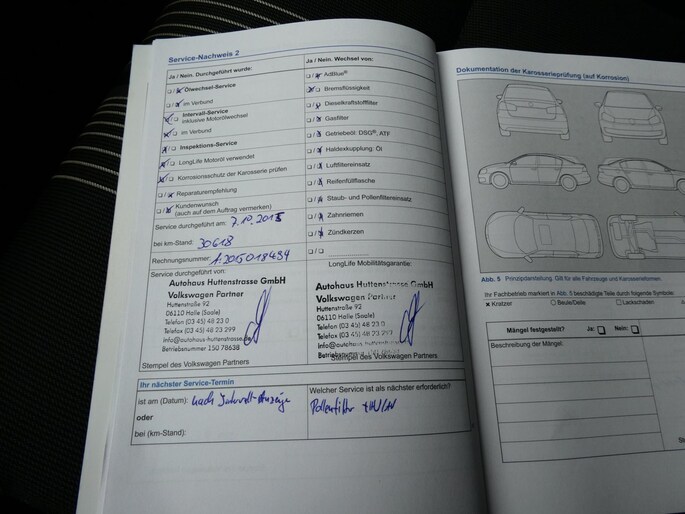 Service-Nachweis 2
Ja / Nein. Durchgeführt wurde:
Ölwechsel-Service
im Verbund
Intervall-Service
inklusive Motorölwechsel
im Verbund
Inspektions-Service
LongLife Motoröl verwendet
Korrosionsschutz der Karosserie prüfen
Reparaturempfehlung
Kundenwunsch
(auch auf dem Auftrag vermerken)
Service durchgeführt am: 7.10.2015
bei km-Stand: 30618
Rechnungsnummer:
Service durchgeführt von:
Autohaus Huttenstrasse GmbH
Volkswagen Partner
Huttenstraße 92
06110 Halle (Saale)
Telefon (03 45) 48 23 0
Telefax (03 45) 48 23 299
info@autohaus-huttenstrasse.de
Betriebsnummer 150 78638
Stempel des Volkswagen Partners
Ja / Nein. Wechsel von:
AdBlue®
Bremsflüssigkeit
Dieselkraftstofffilter
Gasfilter
Getriebeöl: DSG®, ATF
Haldexkupplung: Öl
Luftfiltereinsatz
Reifenfüllflasche
Staub- und Pollenfiltereinsatz
Zahnriemen
Zündkerzen
LongLife Mobilitätsgarantie:
Autohaus Huttenstrasse GmbH
Volkswagen Partner
Huttenstraße 92
06110 Halle (Saale)
Telefon (03 45) 48 23 0
Telefax (03 45) 48 23 299
info@autohaus-huttenstrasse.de
Betriebsnummer 150 78638
Stempel des Volkswagen Partners
Ihr nächster Service-Termin
ist am (Datum): nach Intervall-Anzeige
oder
bei (km-Stand):
Welcher Service ist als nächster erforderlich?
Pollenfilter + HU/AU
Dokumentation der Karosserieprüfung (auf Korrosion)
Abb. 5 Prinzipdarstellung. Gilt für alle Fahrzeuge und Karosserieformen.
Ihr Fachbetrieb markiert in Abb. 5 beschädigte Teile durch folgende Symbole:
x Kratzer
Beule/Delle
Lackschaden
Mängel festgestellt? Ja: Nein:
Beschreibung der Mängel: